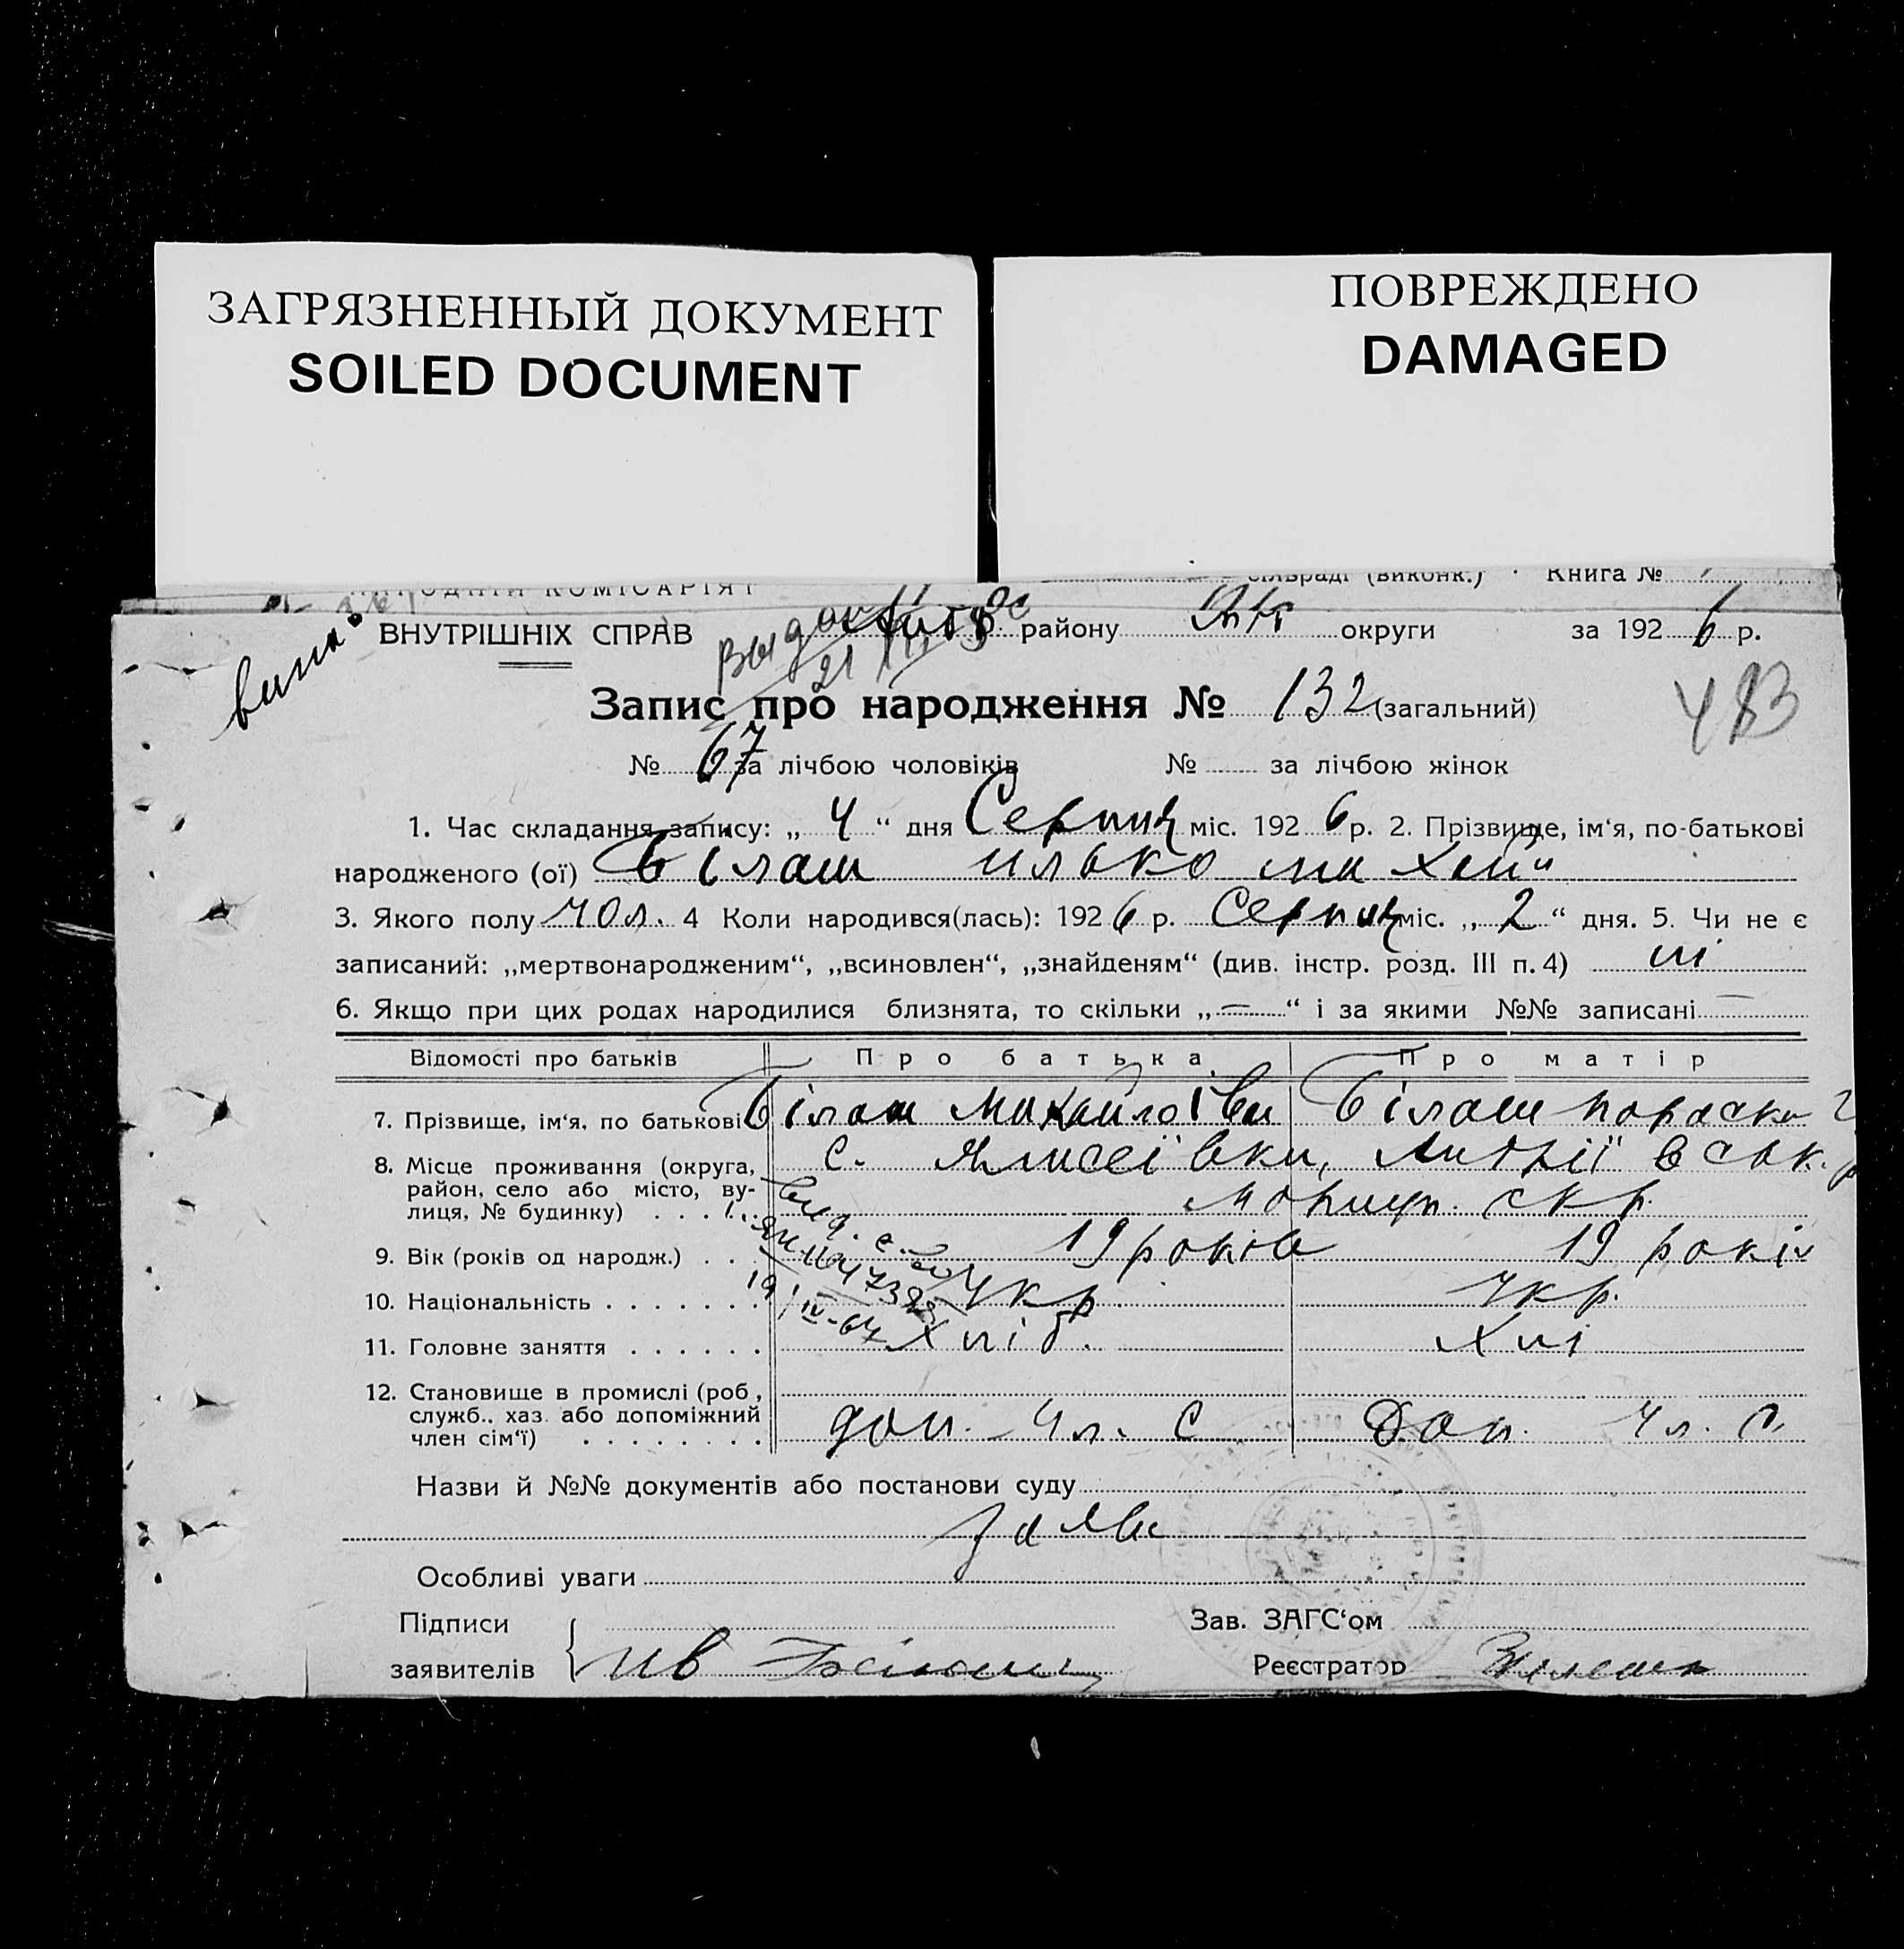 ЗАГРЯЗНЕННЫЙ ДОКУМЕНТ
SOILED DOCUMENT
ПОВРЕЖДЕНО
DAMAGED
НАРОДНІЙ КОМІСАРІЯТ
сільраді (виконк.) Книга №
ВНУТРІШНІХ СПРАВ району округи за 1926 р.
21
Запис про народження № 132 (загальний)
483
№ 67 за лічбою чоловіків № за лічбою жінок
1. Час складання запису: „ 4 “ дня Серпня міс. 1926 р. 2. Прізвище, ім‘я, по-батькові
народженого (ої) Білаш Илько Михай
3. Якого полу чол. 4 Коли народився(лась): 1926 р. Серпня міс. „ 2 “ дня. 5. Чи не є
записаний: „мертвонародженим“, „всиновлен“, „знайденям“ (див. інстр. розд. III п. 4) ні
6. Якщо при цих родах народилися близнята, то скільки „ = “ і за якими №№ записані —
Відомості про батьків Про батька Про матір
7. Прізвище, ім‘я, по батькові Білаш Михайло Ів Білаш Параска
8. Місце проживання (округа, с.
район, село або місто, ву-
лиця, № будинку) . . . . окр.
9. Вік (років од народж.) . . . 19 років 19 років
10. Національність . . . . . . . Укр. Укр.
11. Головне заняття . . . . . . Хліб. Хлі
12. Становище в промислі (роб,
служб., хаз. або допоміжний доп. чл. с Доп. чл. с
член сім‘ї) . . . . . . . .
Назви й №№ документів або постанови суду
Заява
Особливі уваги
Підписи Зав. ЗАГС‘ом
заявителів Ив Білаш Реєстратор